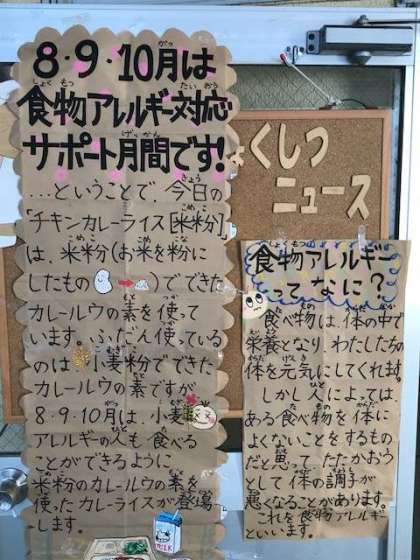 8・9・10月は
食物アレルギー対応
サポート月間です!
…ということで 今日の
「チキンカレーライス[米粉]」
は、米粉(お米を粉に
したもの)でできた
カレールウの素を使って
います。ふだん使っている
のは 小麦粉でできた
カレールウの素ですが
8・9・10月は 小麦
アレルギーの人も 食べる
ことができるように
米粉のカレールウの素を
使ったカレーライスが登場
します。
MILK
くしつ
ニュース
食物アレルギー
ってなに?
食べ物は、体の中で
栄養となり わたしたちの
体を元気にしてくれます。
しかし 人によっては、
ある食べ物を 体に
よくないことをするもの
だと思って たたかおう
として 体の調子が
悪くなることがあります。
これを 食物アレルギー
といいます。